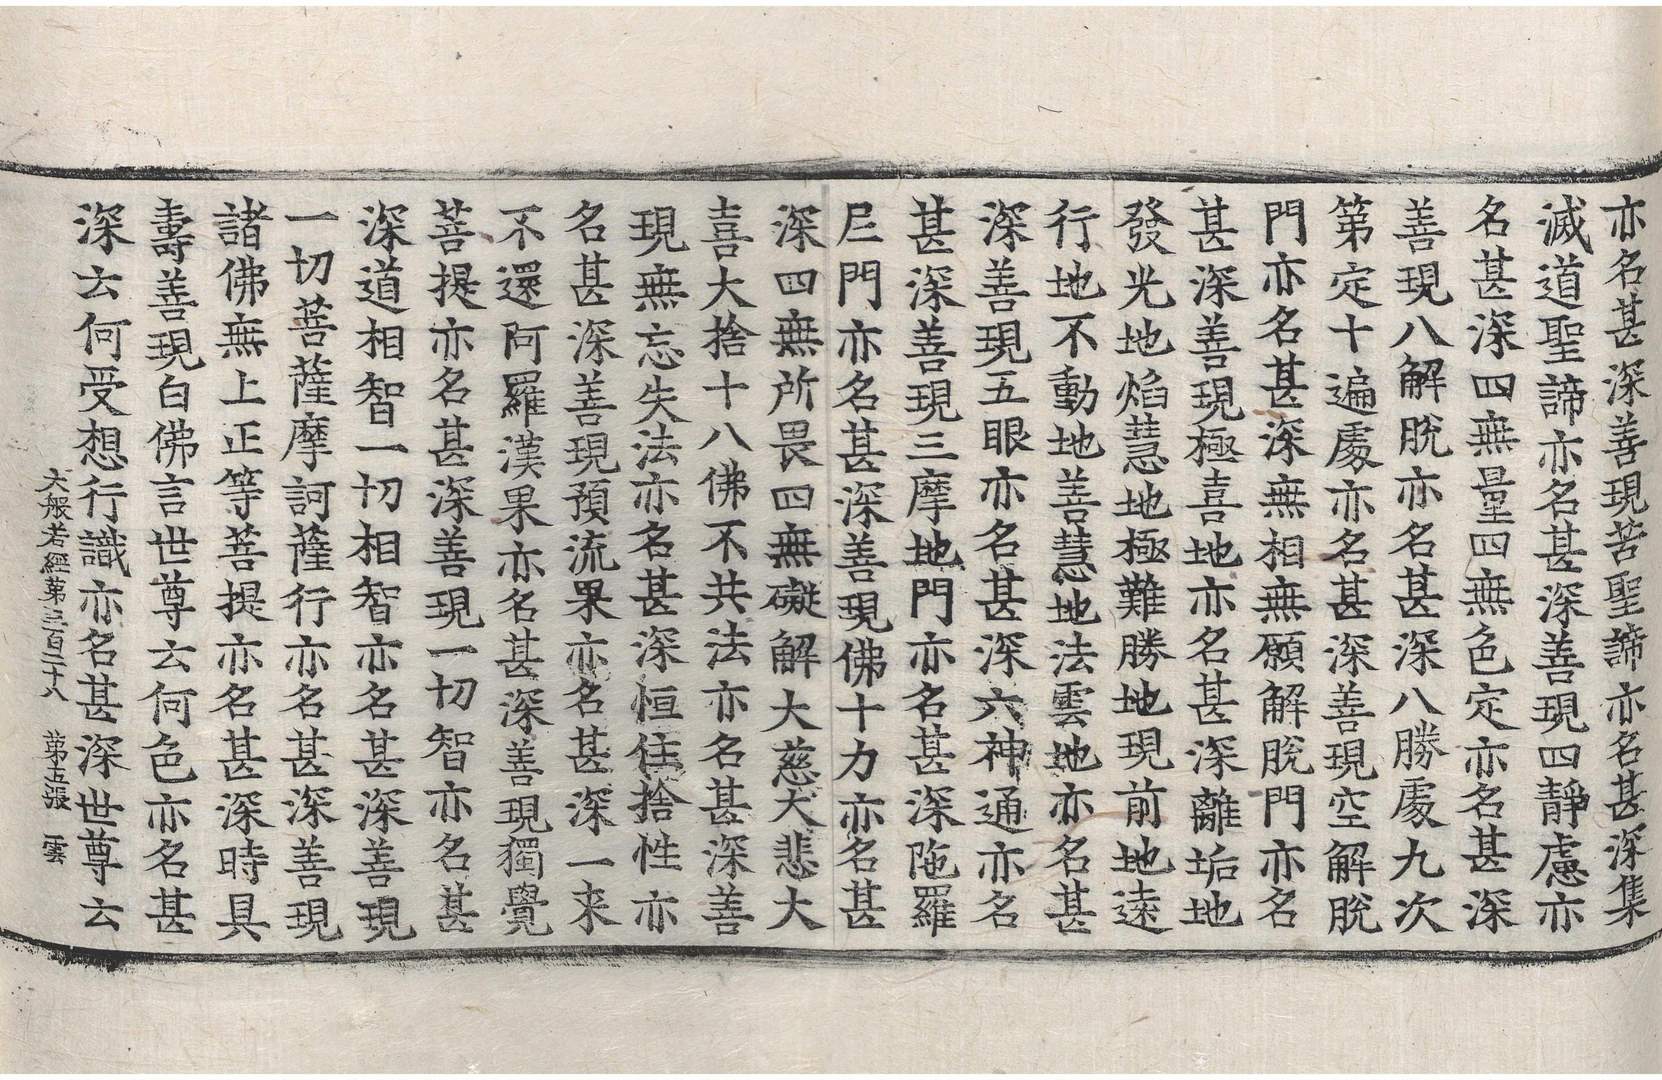 亦名甚深善現苦聖諦亦名甚深集
滅道聖諦亦名甚深善現四靜慮亦
名甚深四無量四無色定亦名甚深
善現八解脫亦名甚深八勝處九次
第定十遍處亦名甚深善現空解脫
門亦名甚深無相無願解脫門亦名
甚深善現極喜地亦名甚深離垢地
發光地焰慧地極難勝地現前地遠
行地不動地善慧地法雲地亦名甚
深善現五眼亦名甚深六神通亦名
甚深善現三摩地門亦名甚深陁羅
尼門亦名甚深善現佛十力亦名甚
深四無所畏四無礙解大慈大悲大
喜大捨十八佛不共法亦名甚深善
現無忘失法亦名甚深恒住捨性亦
名甚深善現預流果亦名甚深一来
不還阿羅漢果亦名甚深善現獨覺
菩提亦名甚深善現一切智亦名甚
深道相智一切相智亦名甚深善現
一切菩薩摩訶薩行亦名甚深善現
諸佛無上正等菩提亦名甚深時具
壽善現白佛言世尊云何色亦名甚
深云何受想行識亦名甚深世尊云
大般若經第三百二十八 第五張 雲